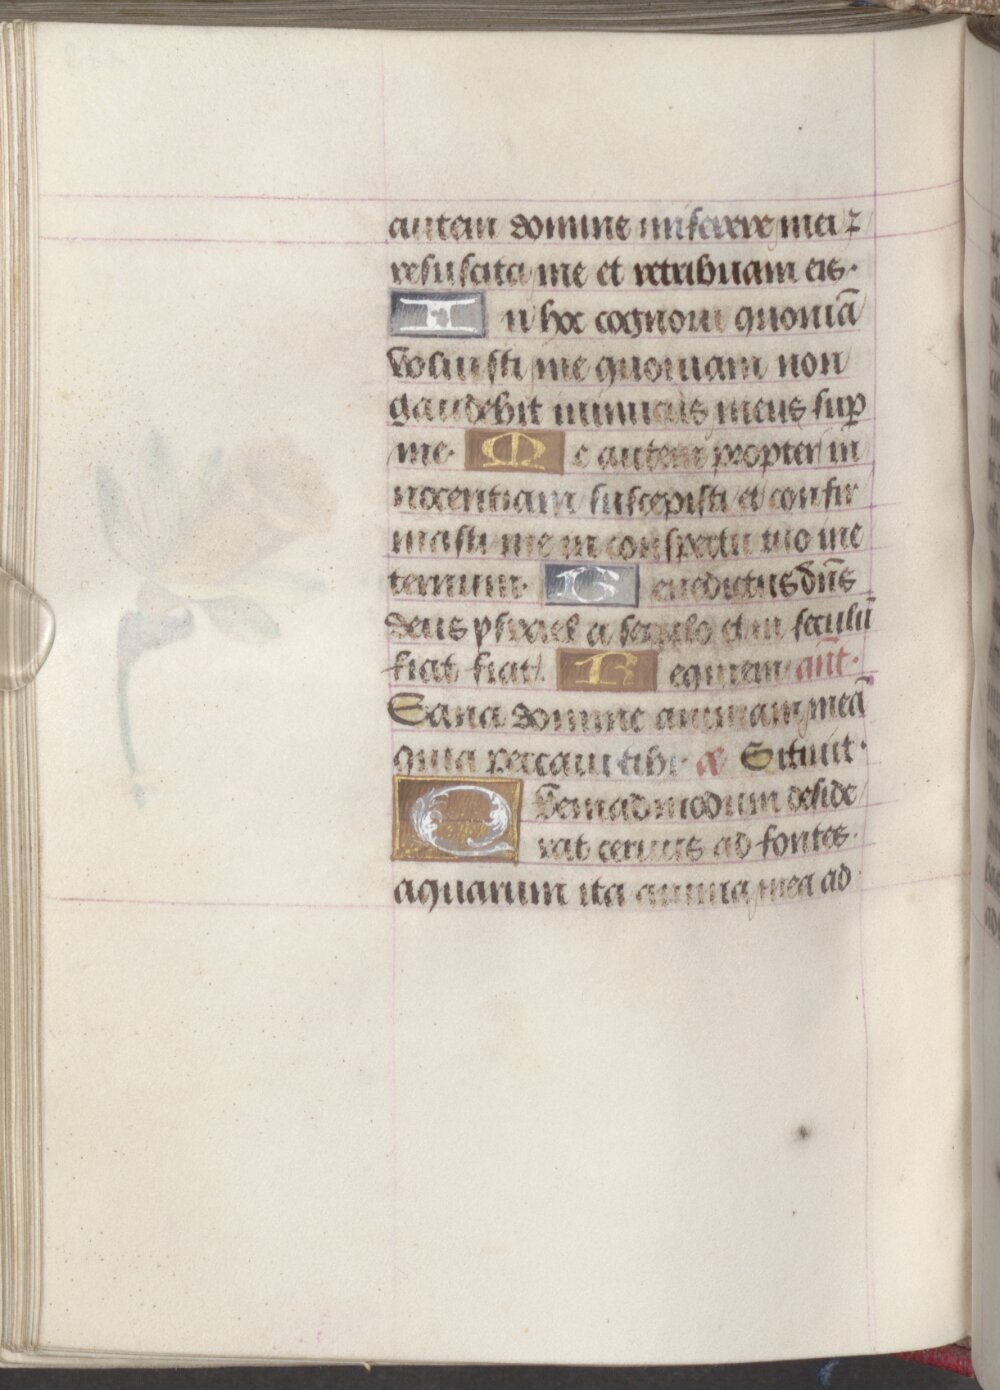 autem domine miserere mei ⁊
resuscita me et retribuam eis·
In hoc cognoui quoniā
voluisti me quoniam non
gaudebit inimicus meus sup
me· Me autem propter in
nocentiam suscepisti et confir
masti me in conspectu tuo me
ternum· Benedictus dn̄s
deus ysrael a seculo et in seculū
fiat fiat/. Requiem an̄t·
Sana domine animam meā
quia peccaui tibi· Sitiuit·
Quemadmodum deside
rat ceruus ad fontes·
aquarum ita anima mea ad